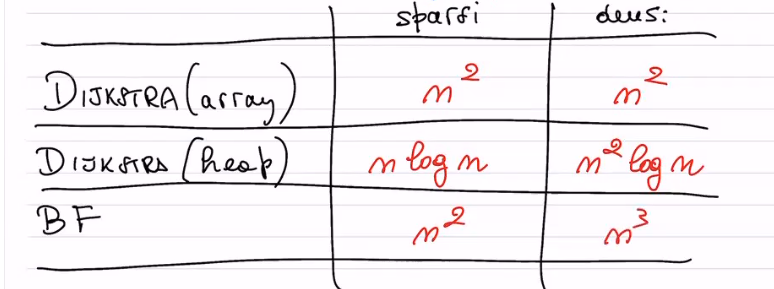 sparsi densi
DIJKSTRA (array) n² n²
DIJKSTRA (heap) n log n n² log n
BF n² n³